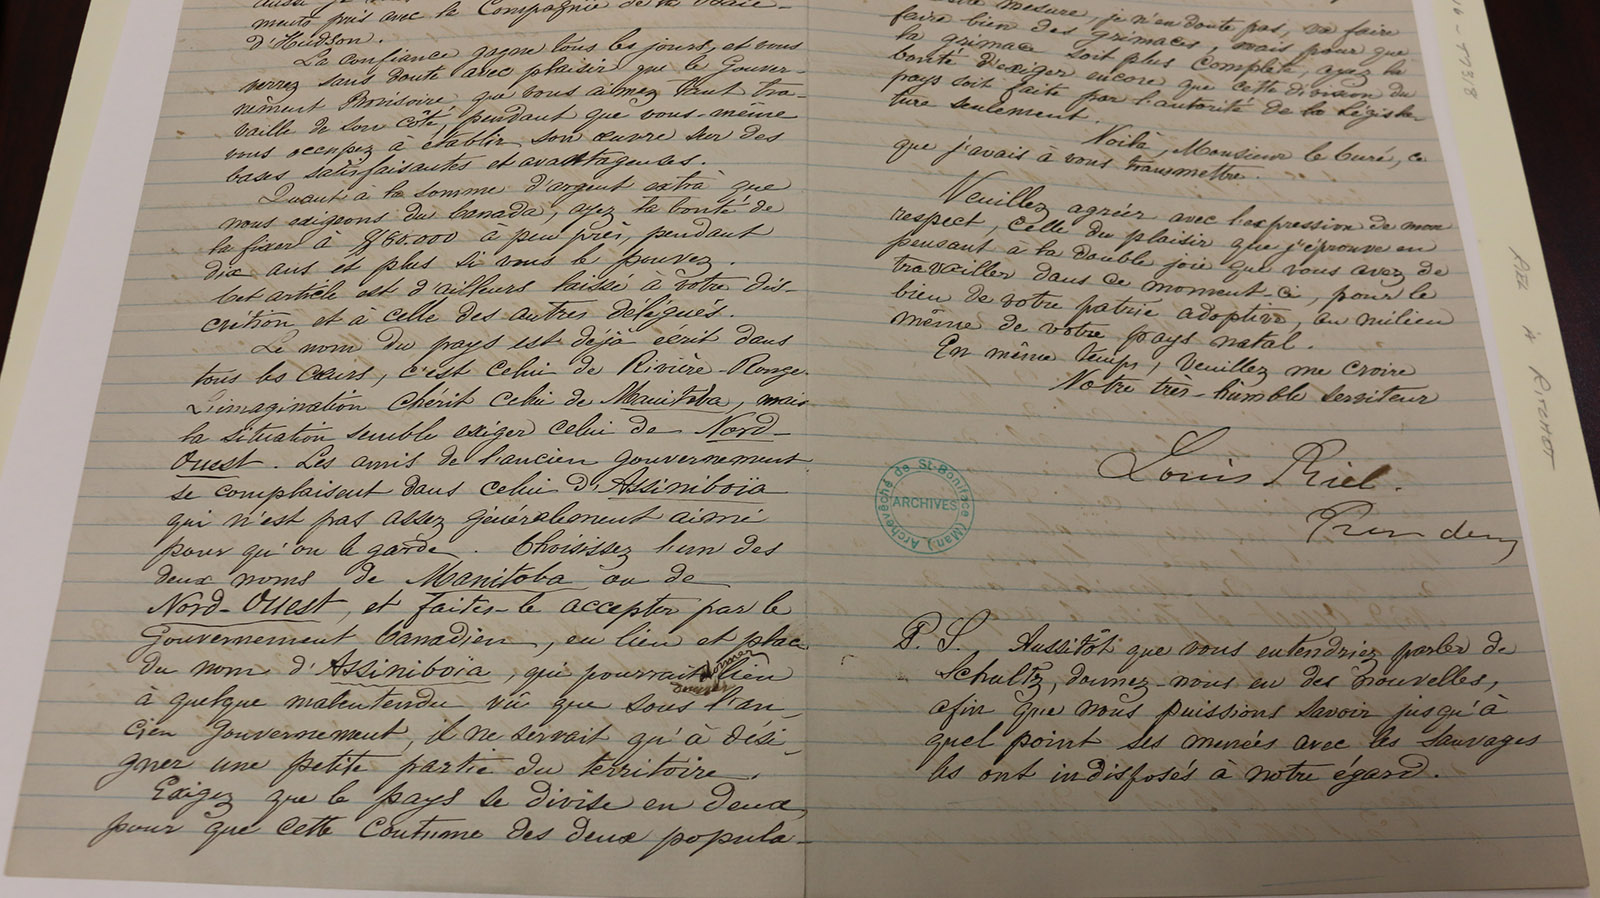 ments pris avec la Compagnie de la Baie-
d'Hudson.
La confiance gagne tous les jours, et vous
verrez sans doute avec plaisir que le Gouver-
nement Provisoire que vous aimez tant tra-
vaille de son côté, pendant que vous-même
vous occupez à établir son œuvre sur des
bases satisfaisantes et avantageuses.
Quant à la somme d'argent extra que
nous exigeons du Canada, ayez la bonté de
la fixer à $80.000 à peu près, pendant
dix ans et plus si vous le pouvez.
Cet article est d'ailleurs laissé à votre dis-
crétion et à celle des autres délégués.
Le nom du pays est déjà écrit dans
tous les cœurs, c'est celui de Rivière-Rouge.
L'imagination chérit celui de Manitoba, mais
la situation semble exiger celui de Nord-
Ouest. Les amis de l'ancien gouvernement
se complaisent dans celui d'Assiniboïa
qui n'est pas assez généralement aimé
pour qu'on le garde. Choisissez l'un des
deux noms de Manitoba ou de
Nord-Ouest, et faites-le accepter par le
Gouvernement Canadien, en lieu et place
du nom d'Assiniboïa, qui pourrait donner lieu
à quelque malentendu vû que sous l'an-
cien Gouvernement, il ne servait qu'à dési-
gner une petite partie du territoire.
Exigez que le pays se divise en deux,
pour que cette coutume des deux popula-
mesure, je n'en doute pas, va faire
faire bien des grimaces, mais pour que
la grimace soit plus complète, ayez la
bonté d'exiger encore que cette division du
pays soit faite par l'autorité de la Législa-
ture seulement.
Voilà, Monsieur le Curé, ce
que j'avais à vous transmettre.
Veuillez agréer avec l'expression de mon
respect, celle du plaisir que j'éprouve en
pensant à la double joie que vous avez de
travailler dans ce moment-ci, pour le
bien de votre patrie adoptive, au milieu
même de votre pays natal.
En même temps, veuillez me croire
Votre très-humble serviteur
Louis Riel.
Archevêché de St-Boniface (Man.)
ARCHIVES
P. S. Aussitôt que vous entendriez parler de
Schultz, donnez-nous en des nouvelles,
afin que nous puissions savoir jusqu'à
quel point ses menées avec les sauvages
les ont indisposés à notre égard.
Riel à Ritchot